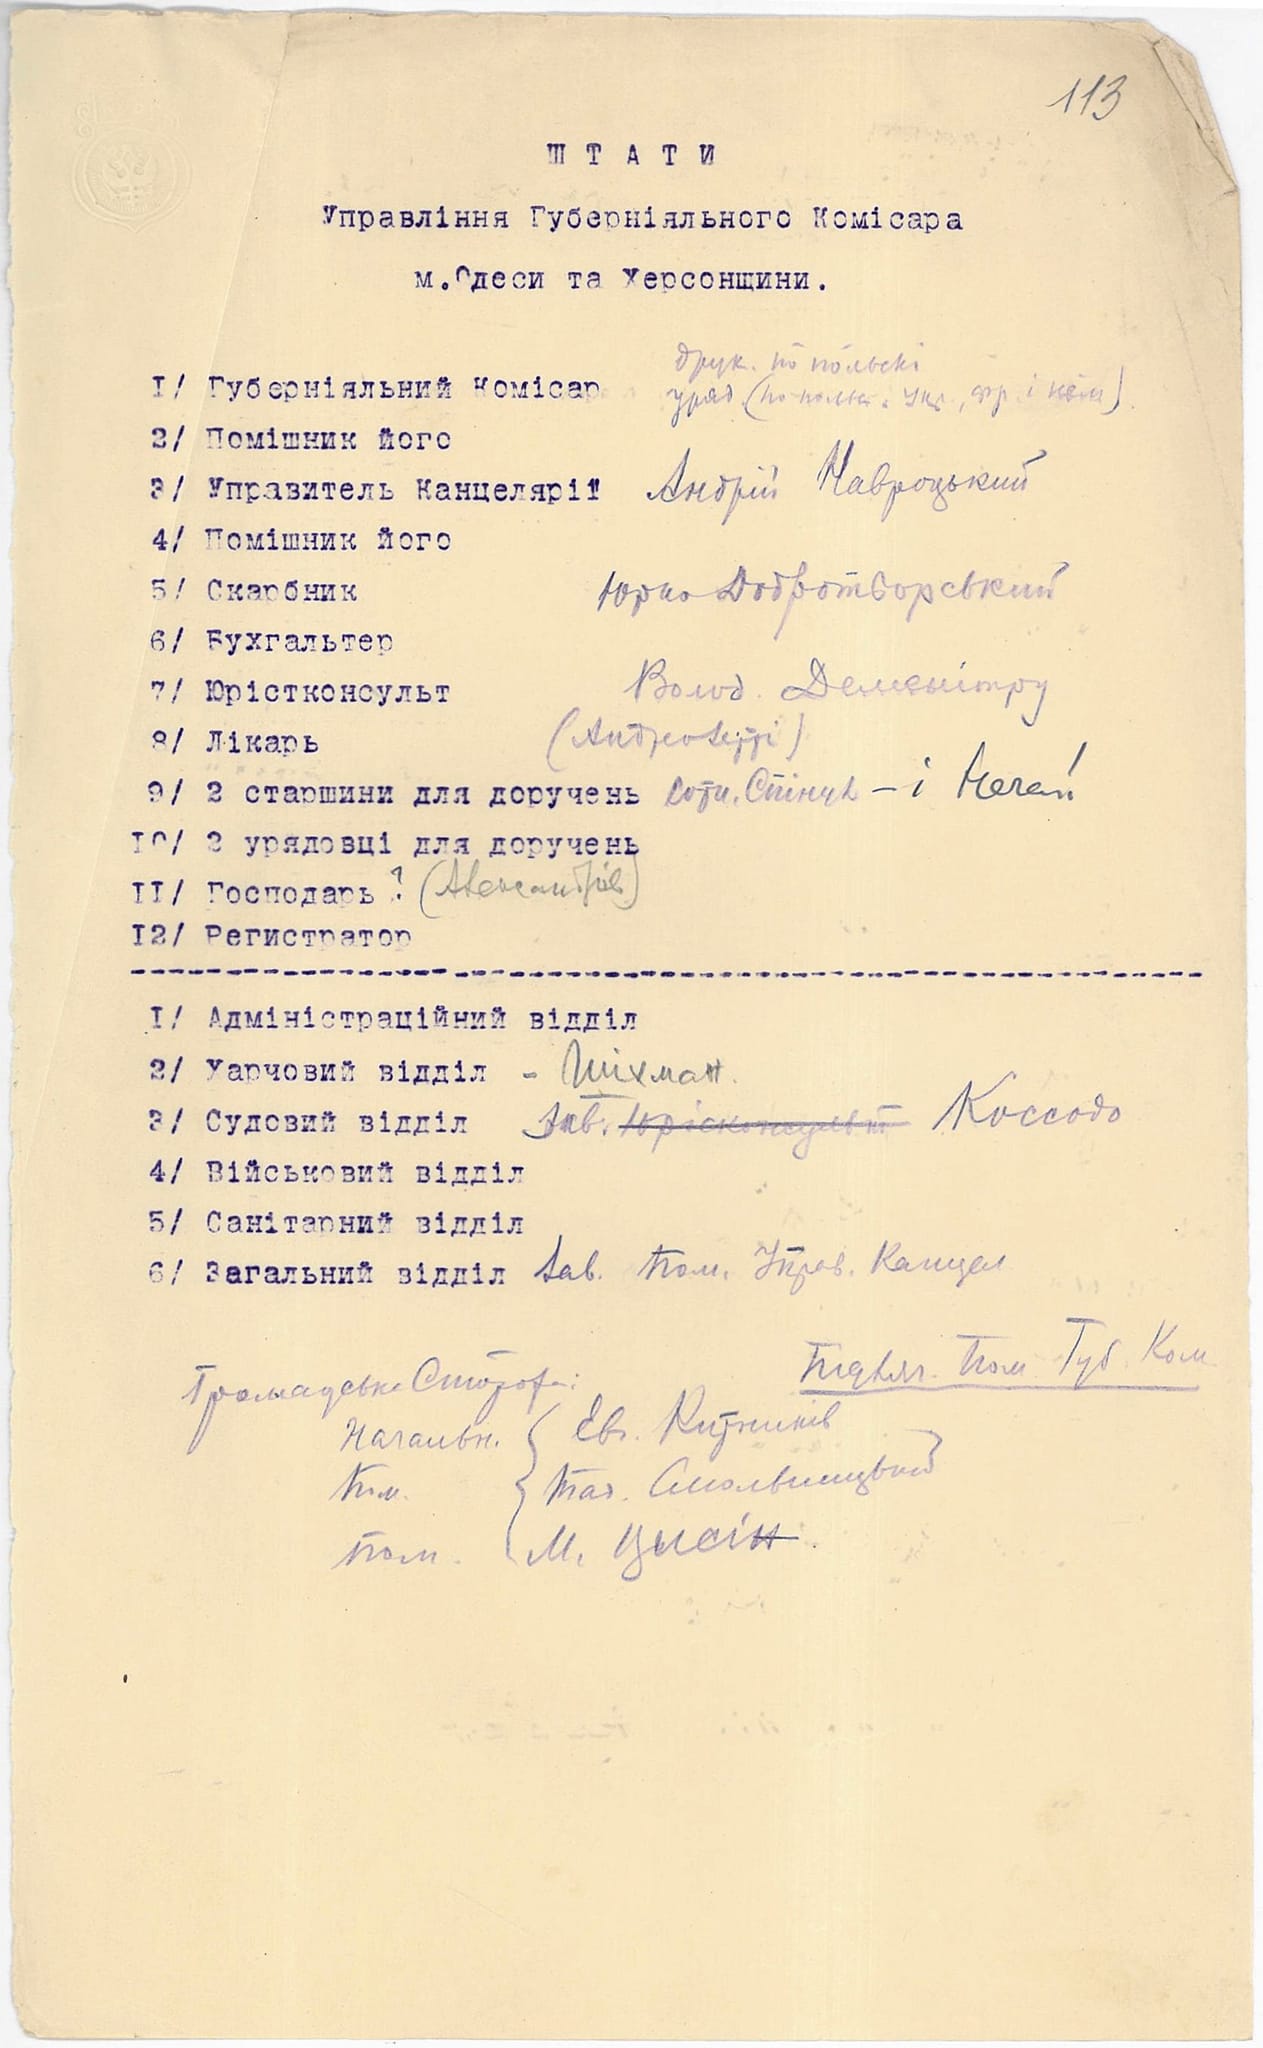 113
ШТАТИ
Управління Губерніяльного Комісара
м.Одеси та Херсонщини.
друк. по польскі
1/ Губерніяльний Комісар уряд. (по польск. укр., фр. і нім)
2/ Помішник його
3/ Управитель Канцелярії Андрій Навроцький
4/ Помішник його
5/ Скарбник Юрко Добротворський
6/ Бухгальтер
7/ Юрістконсульт Волод.
8/ Лікарь
9/ 2 старшини для доручень сотн. – і Нечай
10/ 2 урядовці для доручень
11/ Господарь? (Александрів)
12/ Регистратор
1/ Адміністраційний відділ
2/ Харчовий відділ - Шіхман.
3/ Судовий відділ Зав. Юрісконсульт Коссодо
4/ Військовий відділ
5/ Санітарний відділ
6/ Загальний відділ Зав. Пом. Управ. Канцел
Підляг. Пом Губ. Ком.
Громадська Сторожа:
Начальн. Евг.
Пом. Смольницький
Пом. М.